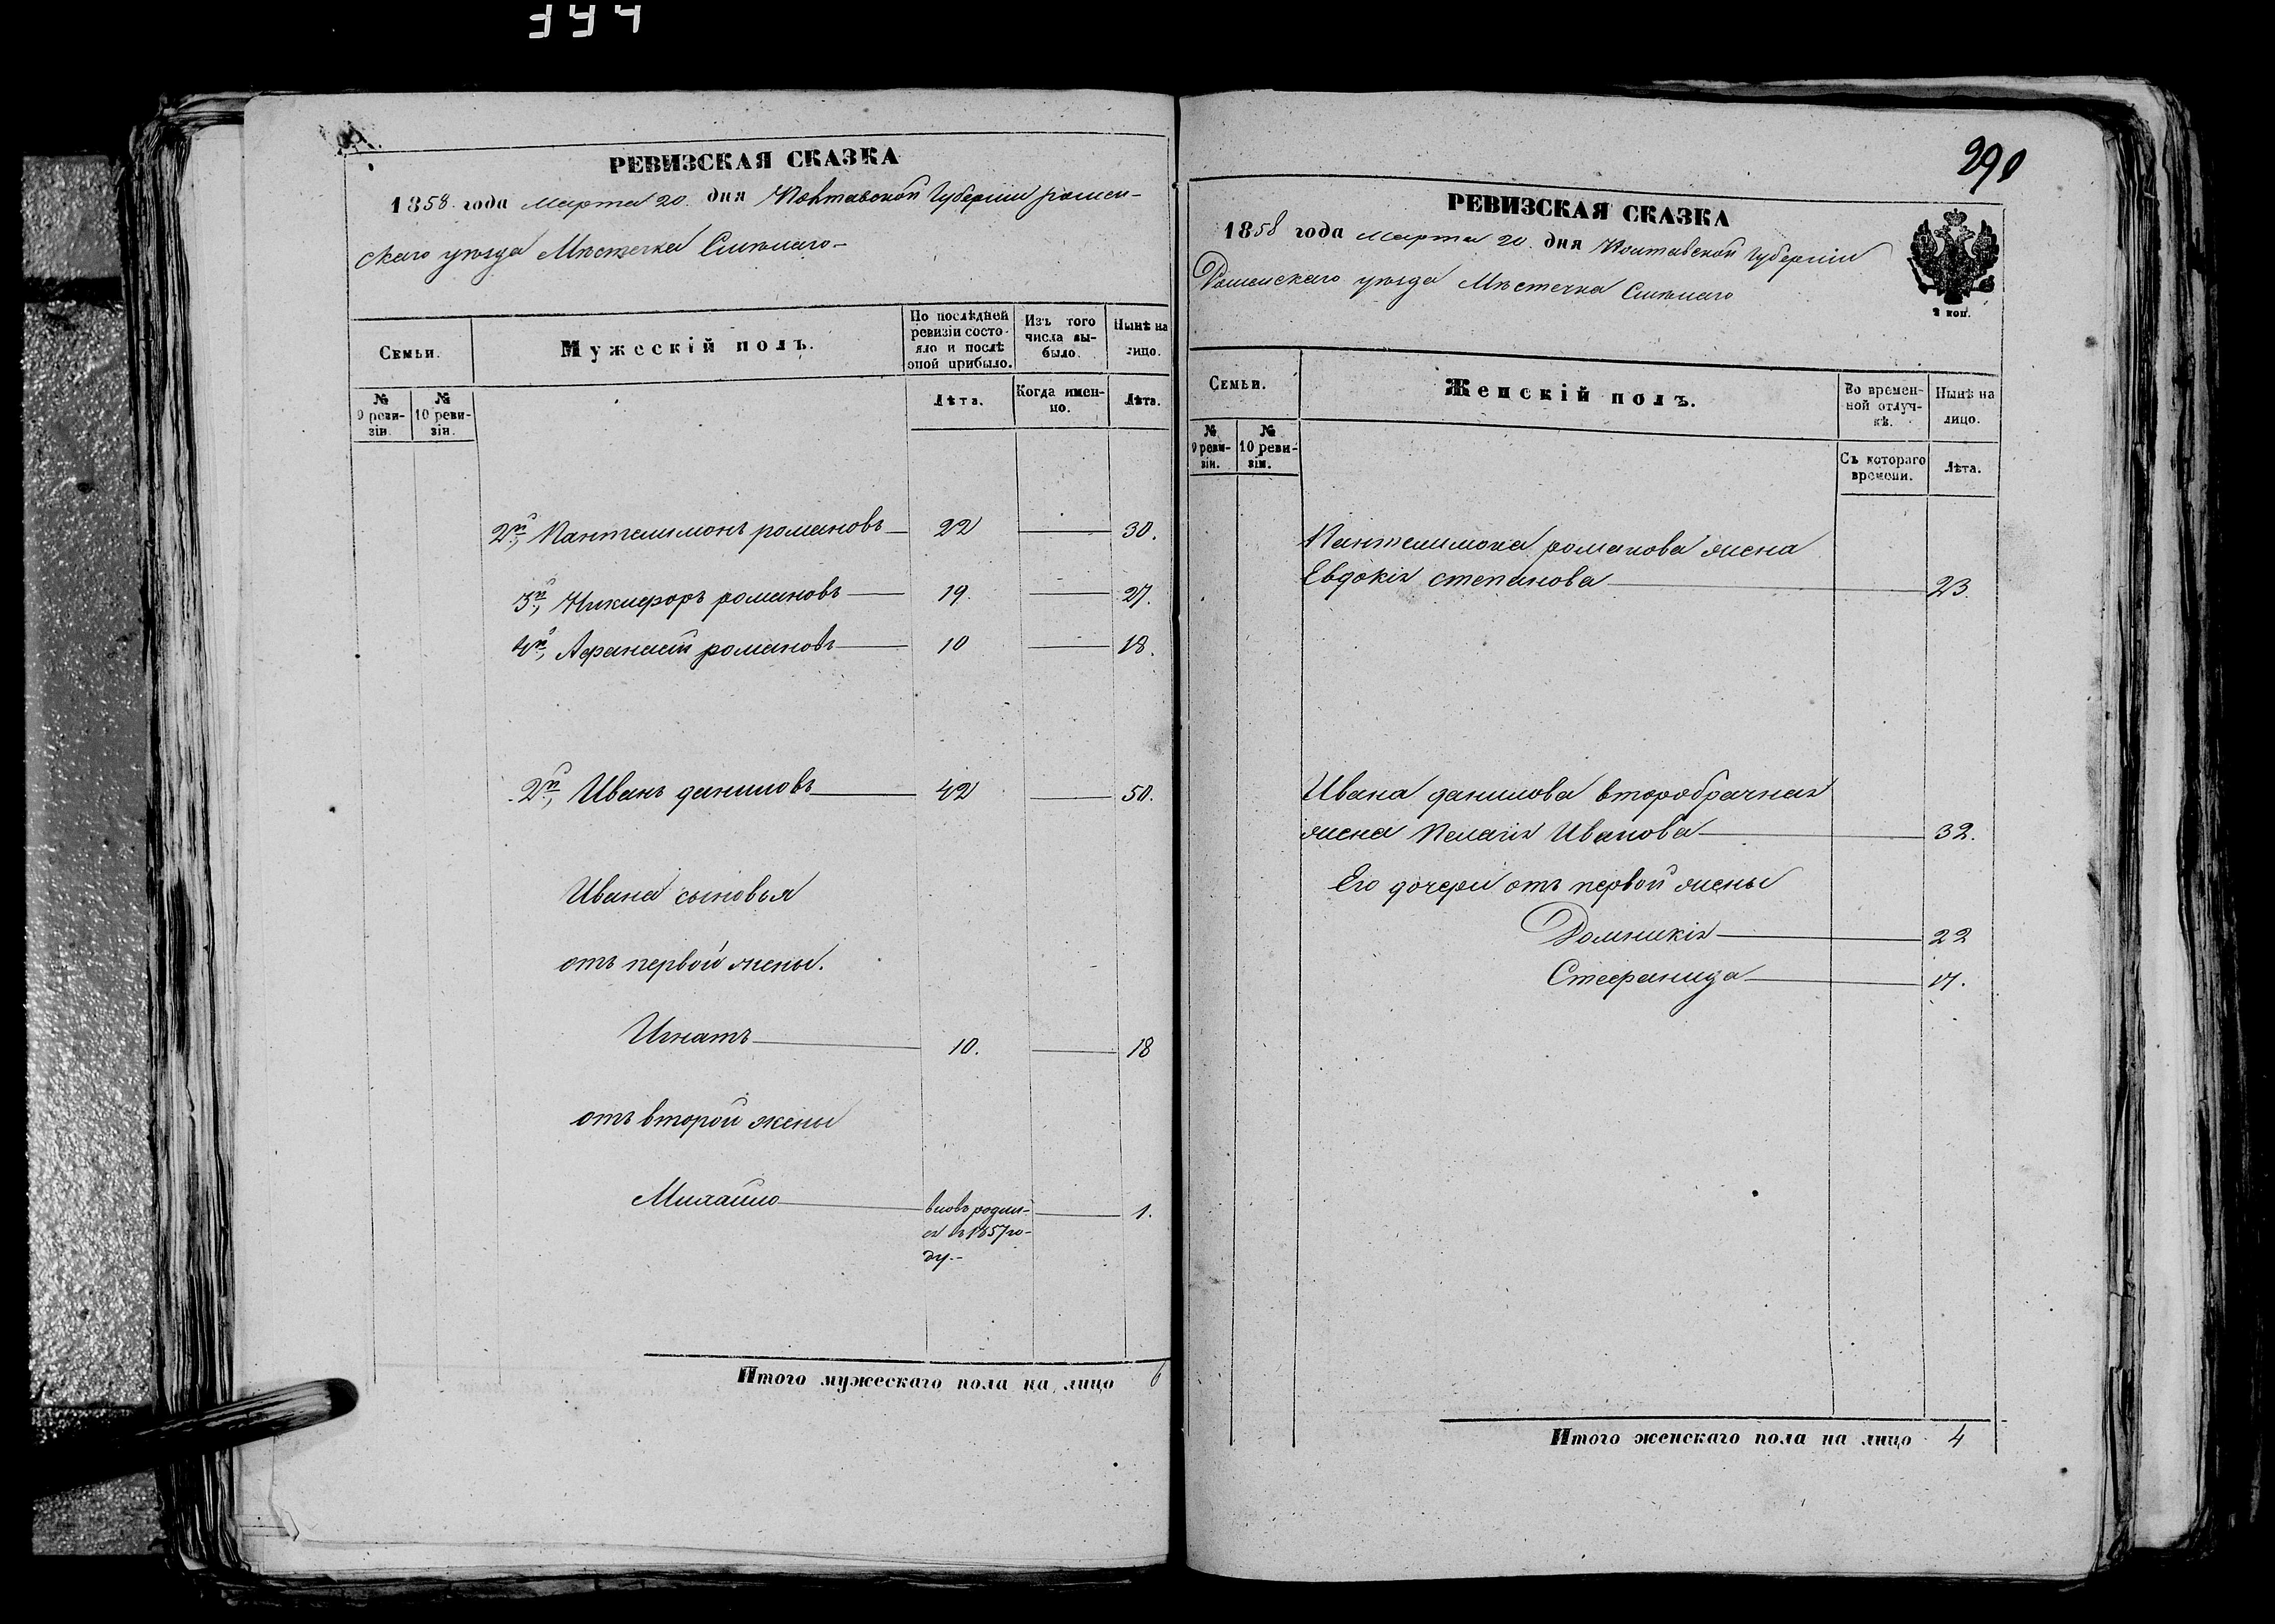 344
РЕВИЗСКАЯ СКАЗКА
1858 года Марта 20. дня Полтавской Губернии ромен-
скаго уѣзда Мѣстечка Смѣлаго
Семьи.
Мужескій полъ.
По послѣдней ревизіи состояло и послѣ оной прибыло.
Изъ того числа выбыло.
Нынѣ на лицо.
№ 9 ревизіи.
№ 10 ревизіи.
Лѣта.
Когда именно.
Лѣта.
2й, Пантелимонъ романовъ 22 30.
3й, Никифоръ романовъ 19. 27.
4й, Афанасій романовъ 10 18.
2й, Иванъ даниловъ 42 50.
Ивана сыновья
отъ первой жены.
Игнатъ 10. 18
отъ второй жены
Михайло вновь родил- 1.
ся въ 1857 го-
ду.
Итого мужескаго пола на лицо 6
290
РЕВИЗСКАЯ СКАЗКА
1858 года Марта 20. дня Полтавской Губерніи
Роменскаго уѣзда Мѣстечка Смѣлаго
2 коп.
Семьи.
Женскій полъ.
Во временной отлучкѣ.
Нынѣ на лицо.
№ 9 ревизіи.
№ 10 ревизіи.
Съ котораго времени.
Лѣта.
Пантелимона романова жена
Евдокія степанова 23.
Ивана данилова второбрачная
жена Пелагія Иванова 32.
Его дочери отъ первой жены
Домникія 22
Стефанида 17.
Итого женскаго пола на лицо 4